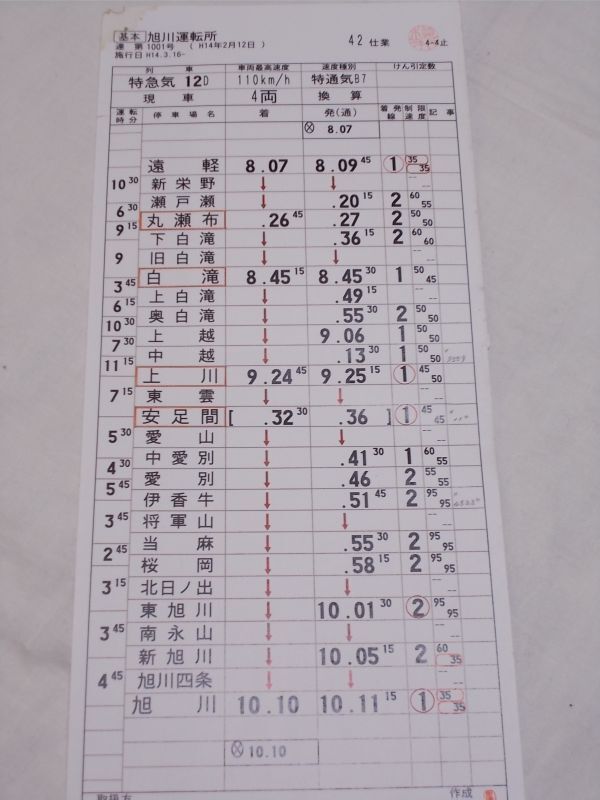 [基本] 旭川運転所
達 第1001号 ( H14年2月12日 ) 42 仕業 4-4止
施行日 H14.3.16-
列 車 車両最高速度 速度種別 けん引定数
特急気 12D 110km/h 特通気B7
現 車 4両 換 算
運転時分 停車場名 着 発(通) 着発線 制限速度 記事
8.07
遠 軽 8.07 8.09 45 1 35 35
10 30 新栄野 ↓ ↓ -- --
瀬戸瀬 ↓ .20 15 2 60 55
6 30 丸瀬布 .26 45 .27 2 50 50
9 15 下白滝 ↓ .36 15 2 60 60
旧白滝 ↓ ↓ -- --
9 白 滝 8.45 15 8.45 30 1 50 45
3 45 上白滝 ↓ .49 15 -- --
6 15 奥白滝 ↓ .55 30 2 50 50
10 30 上 越 ↓ 9.06 1 50 50
7 30 中 越 ↓ .13 30 1 50 50
11 15 上 川 9.24 45 9.25 15 1 45 50
東 雲 ↓ ↓ -- --
7 15 安足間 [ .32 30 .36 ] 1 45 45
愛 山 ↓ ↓ -- --
5 30 中愛別 ↓ .41 30 1 60 55
4 30 愛 別 ↓ .46 2 55 55
5 45 伊香牛 ↓ .51 45 2 95 95
将軍山 ↓ ↓ -- --
3 45 当 麻 ↓ .55 30 2 95 95
2 45 桜 岡 ↓ .58 15 2 95 95
北日ノ出 ↓ ↓ -- --
3 15 東旭川 ↓ 10.01 30 2 95 95
南永山 ↓ ↓ -- --
3 45 新旭川 ↓ 10.05 15 2 60 35
旭川四条 ↓ ↓ -- --
4 45 旭 川 10.10 10.11 15 1 35 35
10.10
取扱方 作成